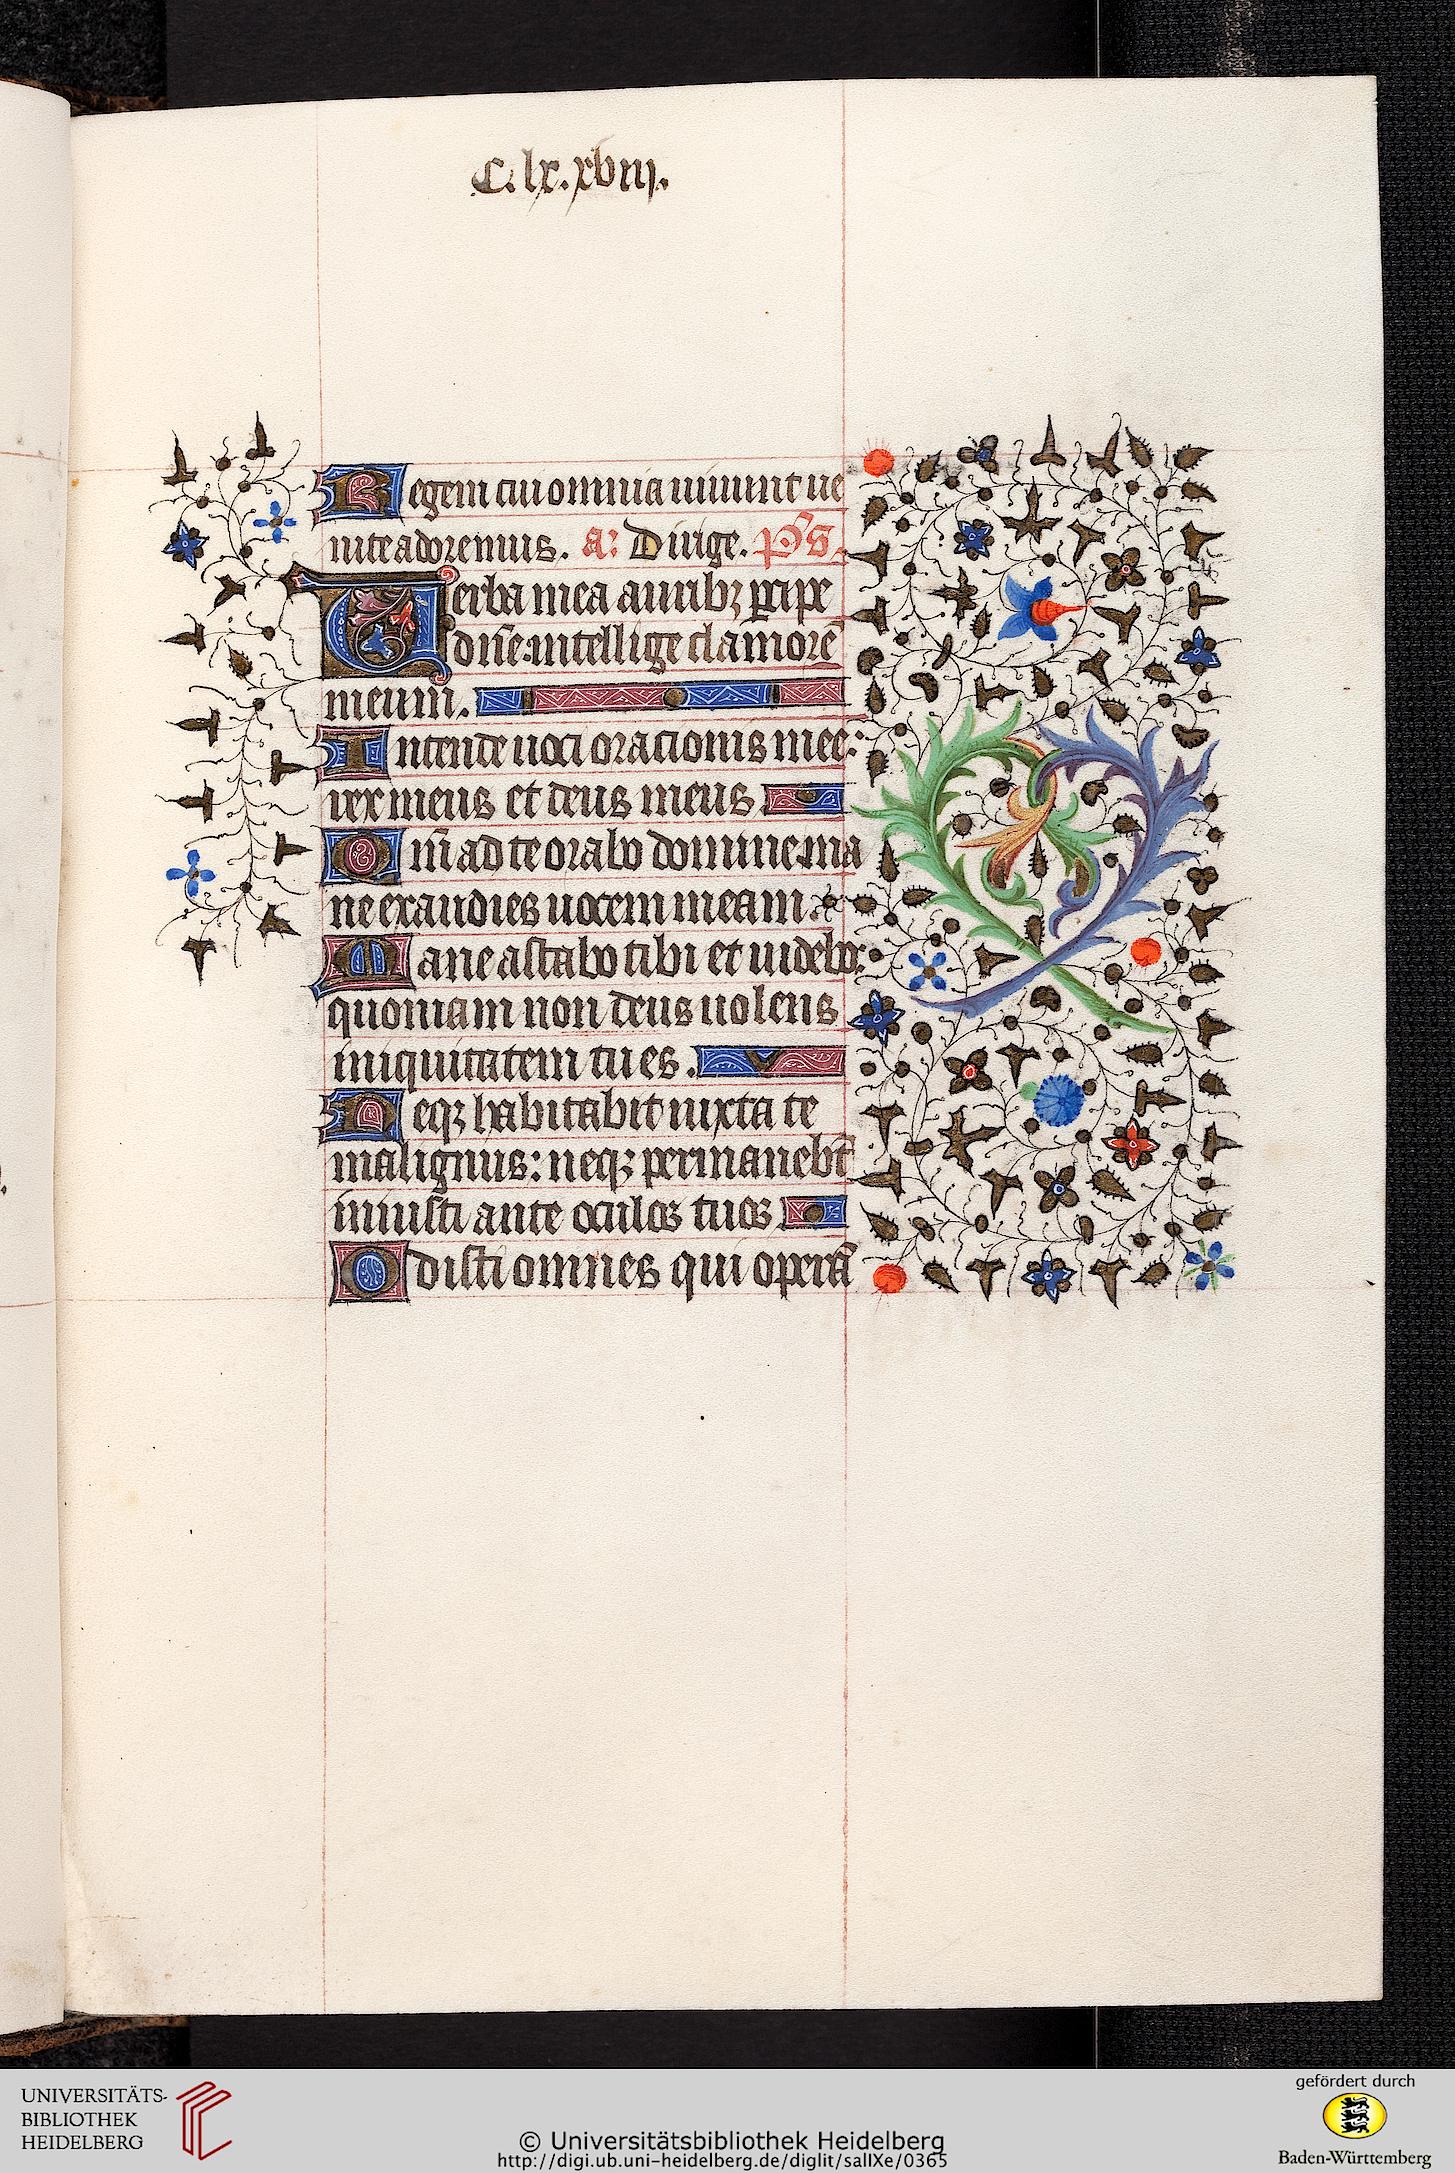 C.lx.xviij.
Regem cui omnia uiuunt ue
nite adoremus. a: Dirige. ps
Verba mea auribꝫ ꝑcipe
dn̄e: intellige clamorē
meum.
Intende uoci oracionis mee:
rex meus et deus meus
Qm̄ ad te orabo domine: ma
ne exaudies uocem meam.
Mane astabo tibi et uidebo:
quoniam non deus uolens
iniquitatem tu es.
Neqꝫ habitabit iuxta te
malignus: neqꝫ permanebt̄
iniusti ante oculos tuos
Odisti omnes qui operā
UNIVERSITÄTS-
BIBLIOTHEK
HEIDELBERG
© Universitätsbibliothek Heidelberg
http://digi.ub.uni-heidelberg.de/diglit/salIXe/0365
gefördert durch
Baden-Württemberg